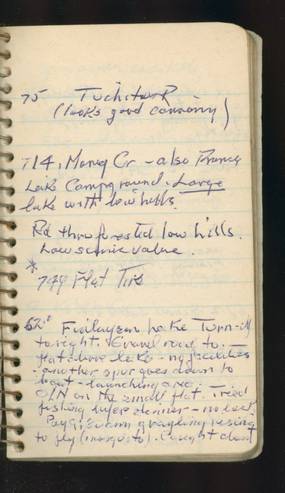 75
(looks good canoeing)
714. Money Cr - also
Lake Campground. Large
lake with low hills.
Rd thru forested low hills.
Low scenic value.
*
749 Flat Tire
Finlayson Lake Turn-off
to right. Gravel road to
flat above lake - no facilities
- another spur goes down to
boat - launching area.
O/N on the small flat. Tried
fishing after dinner - no luck.
grayling rising
to fly (mosquito). Caught about